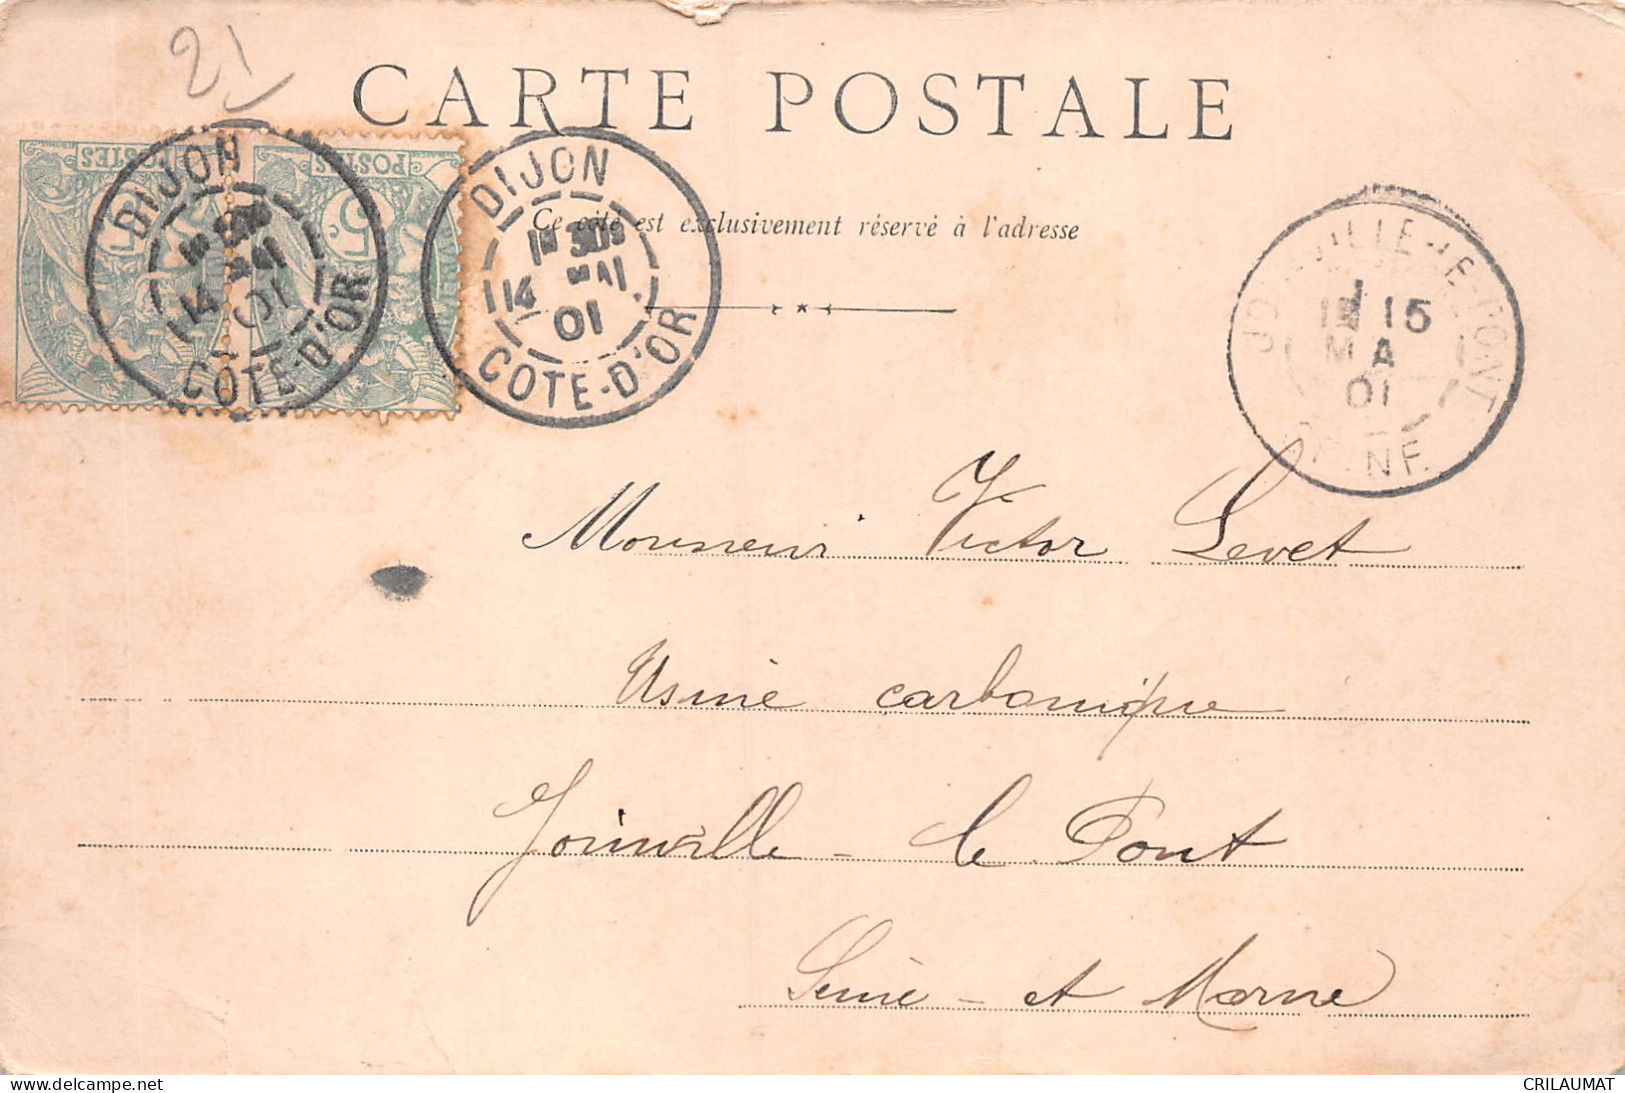 21
CARTE POSTALE
POSTES
POSTES
5c
DIJON
14 MAI
01
COTE-D'OR
DIJON
14 MAI
01
COTE-D'OR
Ce côté est exclusivement réservé à l'adresse
JOINVILLE-LE-PONT
15
MAI
01
SEINE
Monsieur Victor Levet
Usine carbonique
Joinville - le Pont
Seine - et Marne
CRILAUMAT